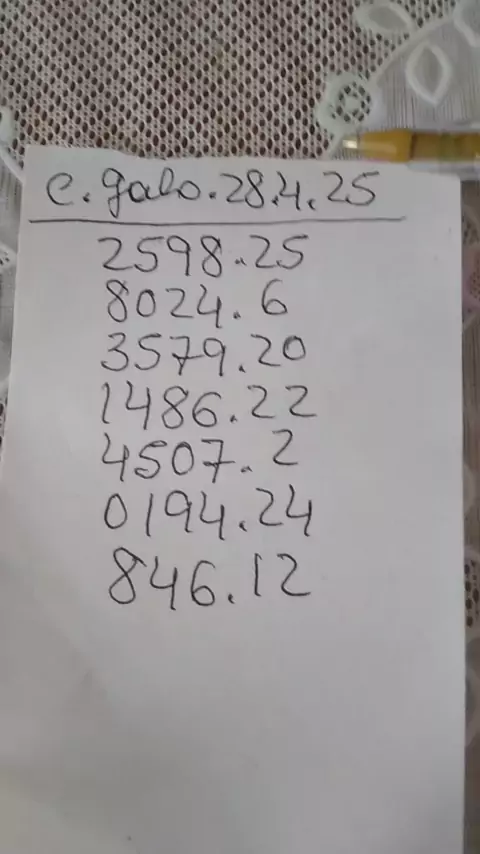 C. galo. 28.4.25
2598.25
8024.6
3579.20
1486.22
4507.2
0194.24
846.12